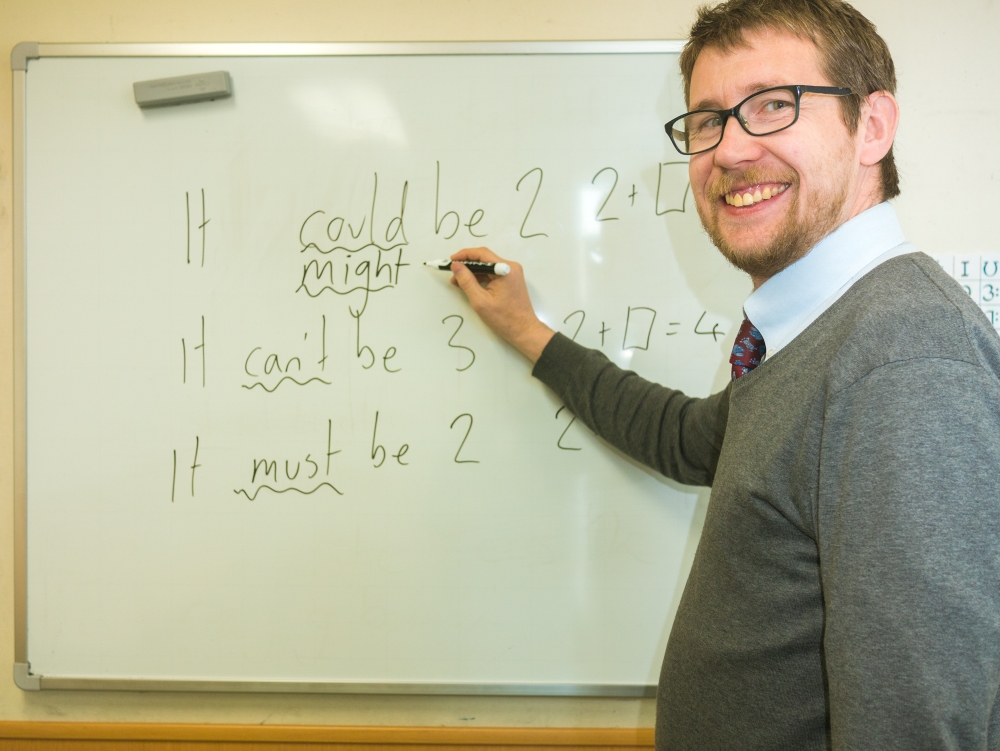 It could be 2 2+□
might
It can't be 3 2+□=4
It must be 2 2
I U
3: